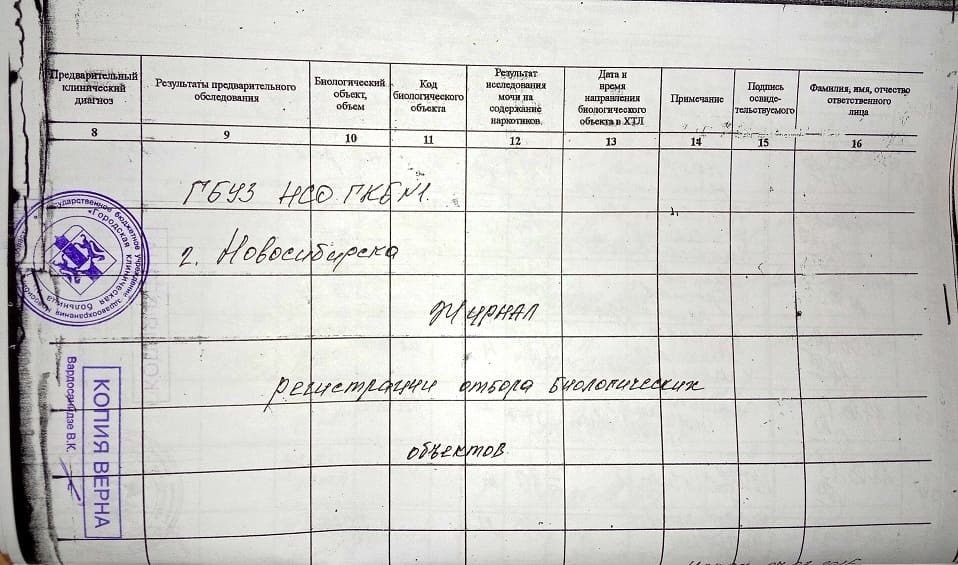 Предварительный клинический диагноз
Результаты предварительного обследования
Биологический объект, объем
Код биологического объекта
Результат исследования мочи на содержание наркотиков
Дата и время направления биологического объекта в ХТЛ
Примечание
Подпись освиде-тельствуемого
Фамилия, имя, отчество ответственного лица
8 9 10 11 12 13 14 15 16
ГБУЗ НСО ГКБ №1.
г. Новосибирска
Журнал
регистрации отбора биологических
объектов
Государственное бюджетное учреждение здравоохранения
"Городская клиническая больница
КОПИЯ ВЕРНА
Вардосанидзе В.К.